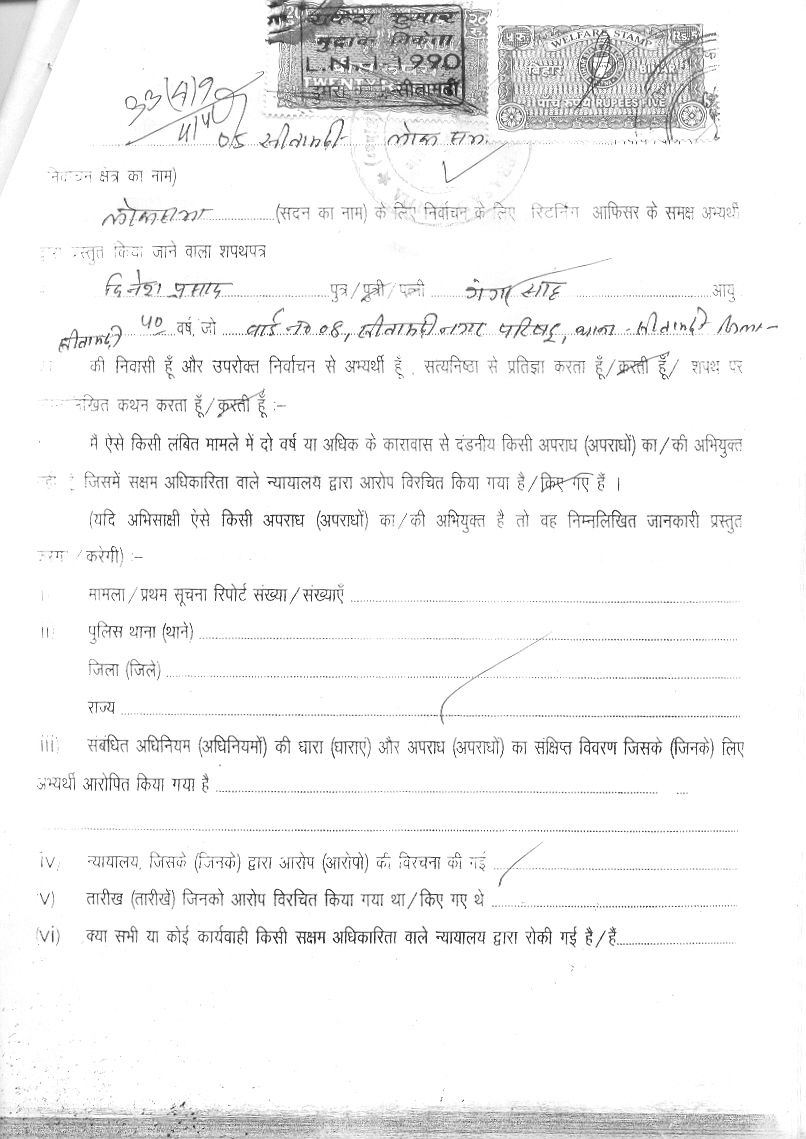 राकेश कुमार
मुद्रांक विक्रेता
L.N.-1-1990
डुमरा कोर्ट, सीतामढ़ी
WELFARE STAMP
बिहार
पांच रुपये RUPEES FIVE
05 सीतामढ़ी लोक सभा
निर्वाचन क्षेत्र का नाम)
लोकसभा (सदन का नाम) के लिए निर्वाचन के लिए रिटर्निंग आफिसर के समक्ष अभ्यर्थी
द्वारा प्रस्तुत किया जाने वाला शपथपत्र
दिनेश प्रसाद पुत्र/पुत्री/पत्नी गंगा साह आयु
40 वर्ष, जो वार्ड नं० 08, सीतामढ़ी नगर परिषद्, थाना - सीतामढ़ी जिला-
सीतामढ़ी
की निवासी हूँ और उपरोक्त निर्वाचन से अभ्यर्थी हूँ , सत्यनिष्ठा से प्रतिज्ञा करता हूँ/करती हूँ/ शपथ पर
कथन करता हूँ/करती हूँ :-
मै ऐसे किसी लंबित मामले में दो वर्ष या अधिक के कारावास से दंडनीय किसी अपराध (अपराधों) का/की अभियुक्त
जिसमें सक्षम अधिकारिता वाले न्यायालय द्वारा आरोप विरचित किया गया है/किए गए हैं ।
(यदि अभिसाक्षी ऐसे किसी अपराध (अपराधों) का/की अभियुक्त है तो वह निम्नलिखित जानकारी प्रस्तुत
करेगा /करेगी) :-
मामला/प्रथम सूचना रिपोर्ट संख्या/संख्याएँ
ii) पुलिस थाना (थाने)
जिला (जिले)
राज्य
iii) संबंधित अधिनियम (अधिनियमों) की धारा (धाराए) और अपराध (अपराधों) का संक्षिप्त विवरण जिसके (जिनके) लिए
अभ्यर्थी आरोपित किया गया है
iv) न्यायालय, जिसके (जिनके) द्वारा आरोप (आरोपो) की विरचना की गई
v) तारीख (तारीखें) जिनको आरोप विरचित किया गया था/किए गए थे
(vi) क्या सभी या कोई कार्यवाही किसी सक्षम अधिकारिता वाले न्यायालय द्वारा रोकी गई है/हैं